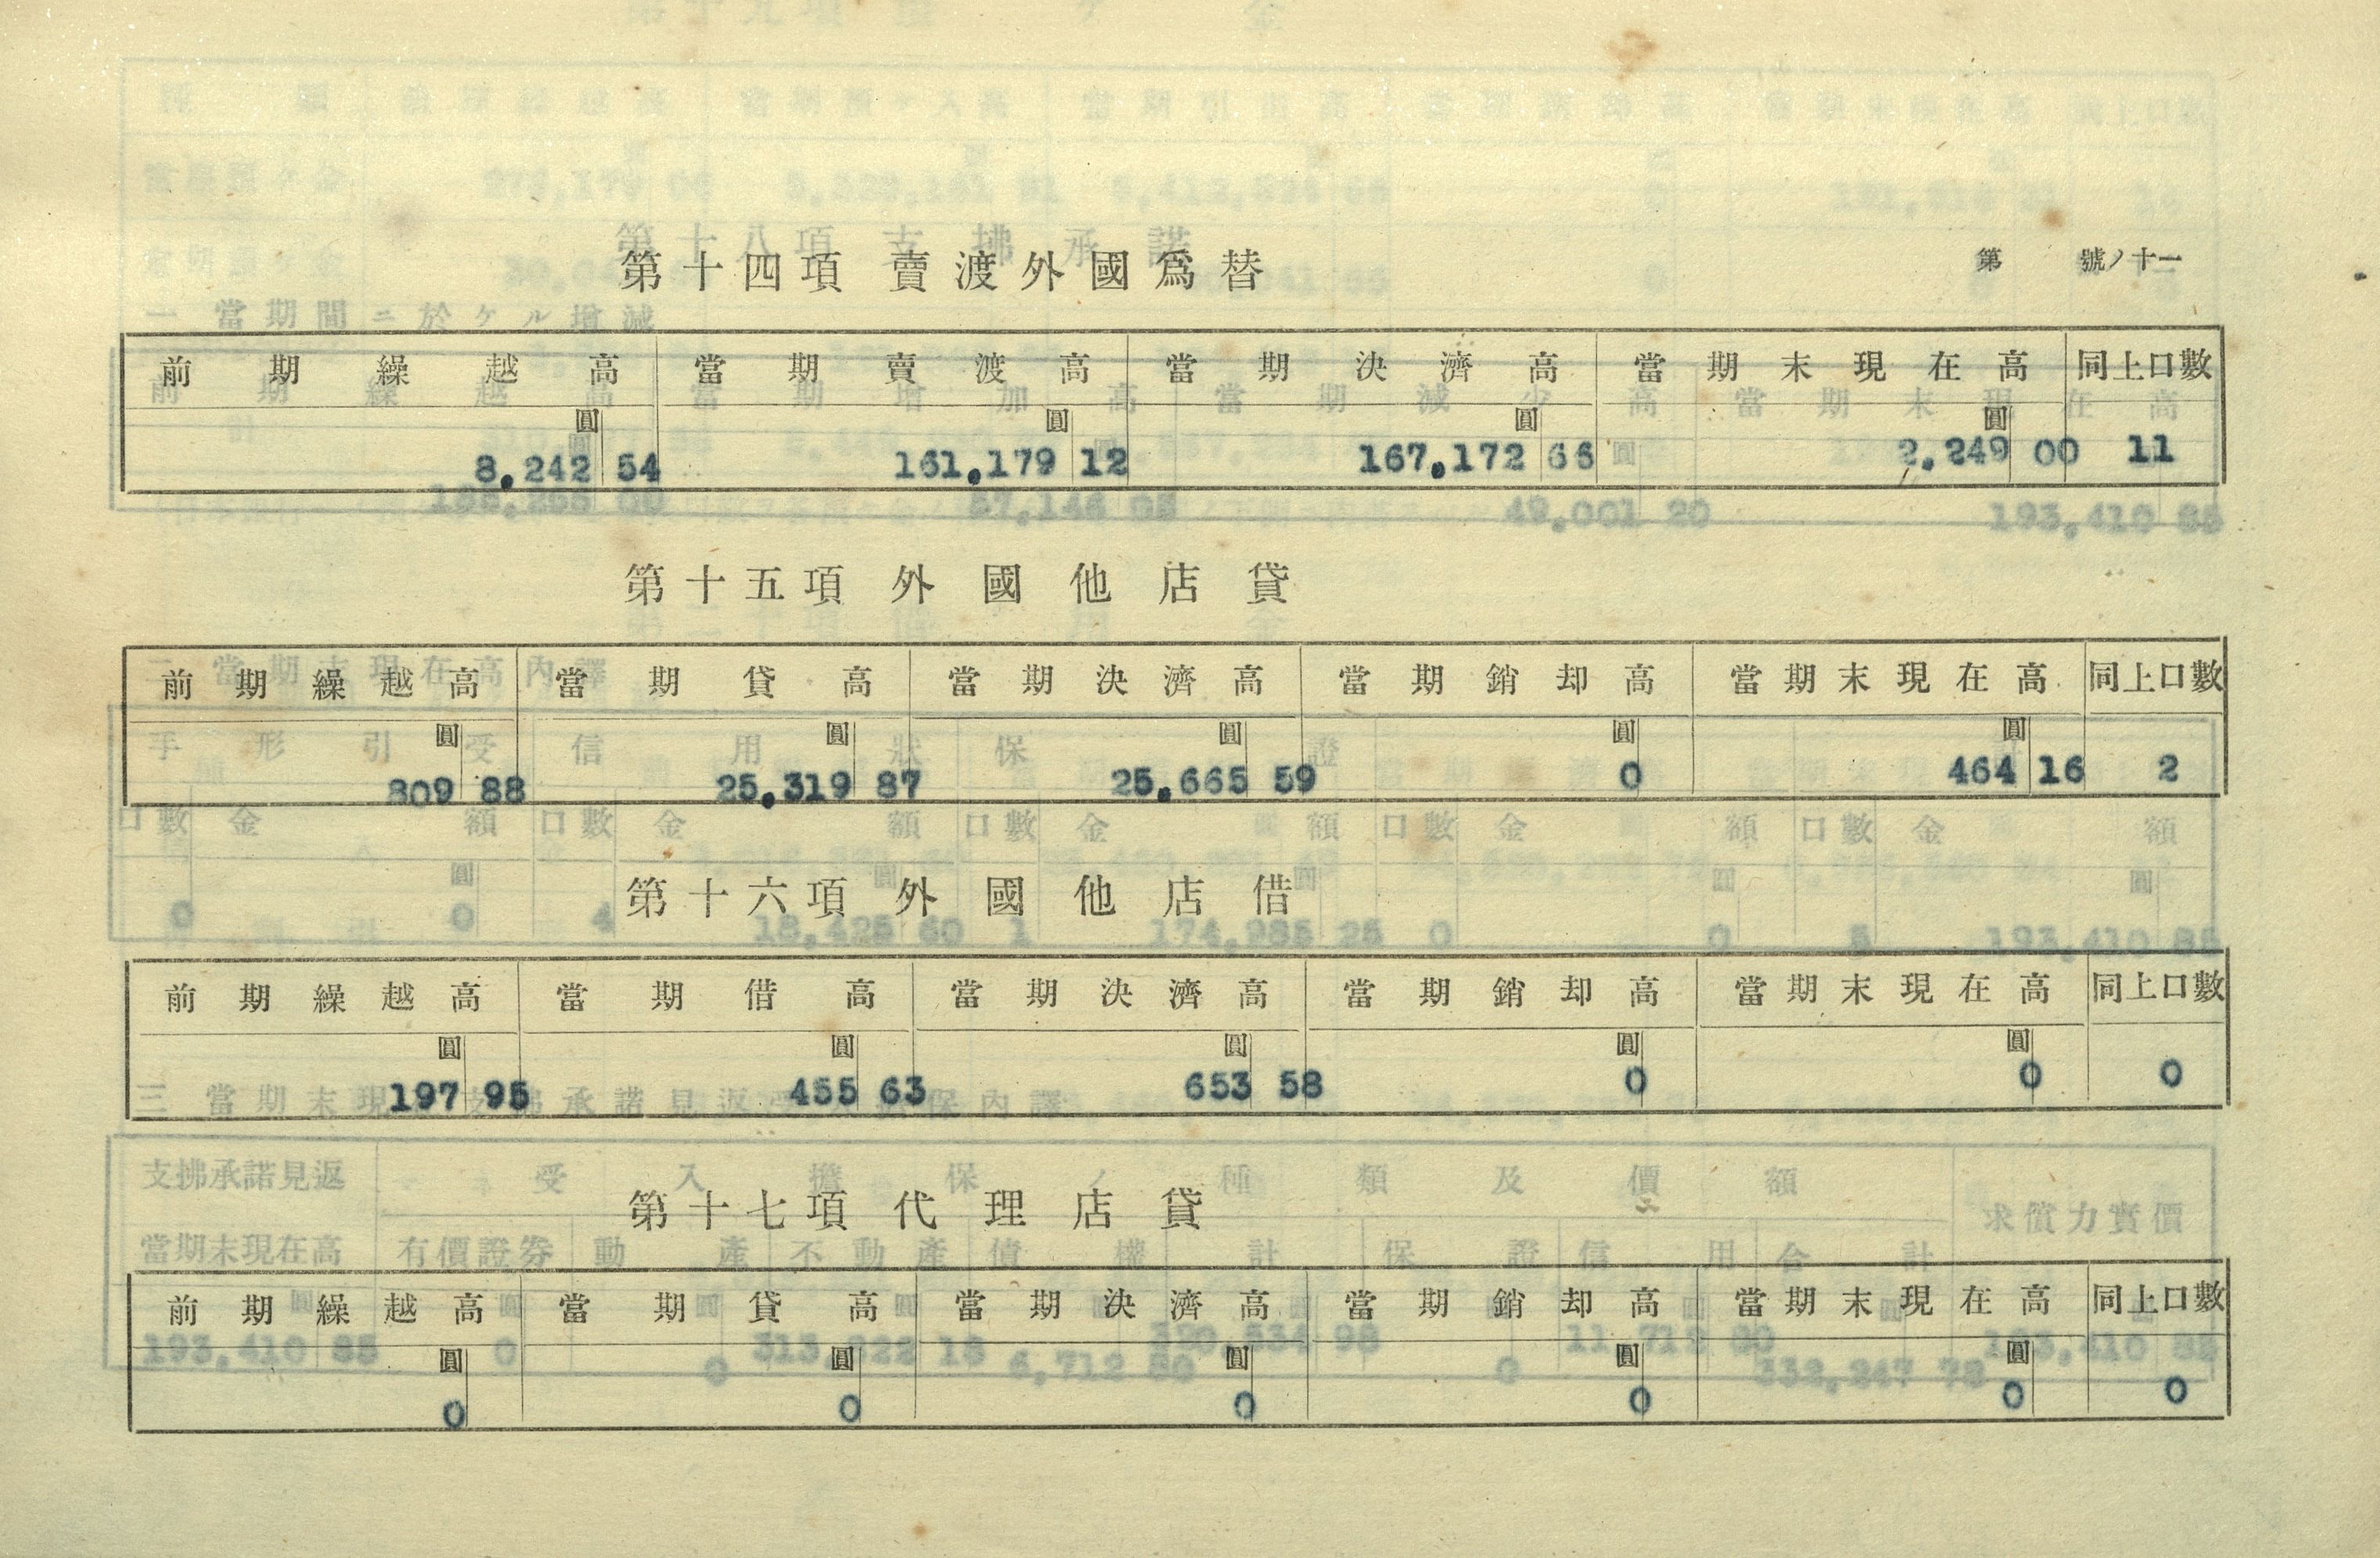 第十四項 賣渡外國爲替
第 號ノ十一
前期繰越高 當期賣渡高 當期決濟高 當期末現在高 同上口數
圓 圓 圓 圓
8,242 54 161,179 12 167,172 66 2,249 00 11
第十五項 外國他店貸
前期繰越高 當期貸高 當期決濟高 當期銷却高 當期末現在高 同上口數
圓 圓 圓 圓 圓
809 88 25,319 87 25,665 59 0 464 16 2
第十六項 外國他店借
前期繰越高 當期借高 當期決濟高 當期銷却高 當期末現在高 同上口數
圓 圓 圓 圓 圓
197 95 455 63 653 58 0 0 0
第十七項 代理店貸
前期繰越高 當期貸高 當期決濟高 當期銷却高 當期末現在高 同上口數
圓 圓 圓 圓 圓
0 0 0 0 0 0